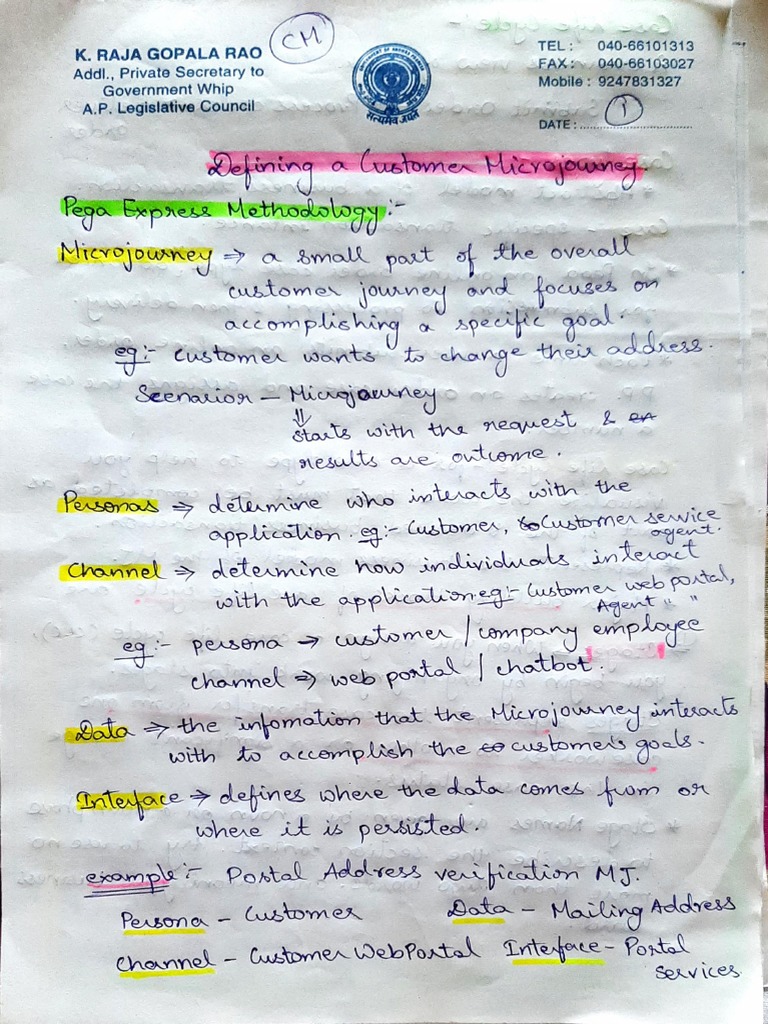 CM
K. RAJA GOPALA RAO
Addl., Private Secretary to
Government Whip
A.P. Legislative Council
सत्यमेव जयते
TEL : 040-66101313
FAX : 040-66103027
Mobile : 9247831327
DATE : 1
Defining a Customer Microjourney.
Pega Express Methodology :-
Microjourney ⇒ a small part of the overall
customer journey and focuses on
accomplishing a specific goal.
eg:- customer wants to change their address.
Scenarior - Microjourney
⇓
starts with the request &
results are outcome.
Personas ⇒ determine who interacts with the
application. eg:- Customer, Customer service
agent.
Channel ⇒ determine how individuals interact
with the application eg:- Customer web portal,
Agent " "
eg:- persona → customer / company employee
channel ⇒ web portal / chatbot.
Data ⇒ the infomation that the Microjourney interacts
with to accomplish the customer's goals.
Interface ⇒ defines where the data comes from or
where it is persisted.
example:- Postal Address verification MJ.
Persona - Customer Data - Mailing Address
Channel - Customer WebPortal Interface - Portal
services